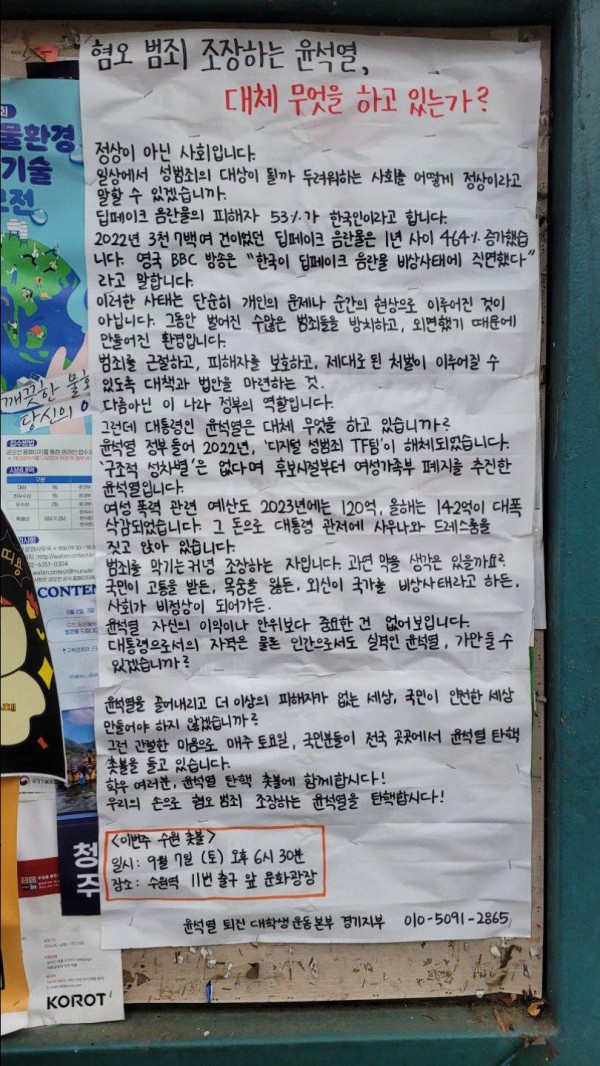 혐오 범죄 조장하는 윤석열,
대체 무엇을 하고 있는가?
정상이 아닌 사회입니다.
일상에서 성범죄의 대상이 될까 두려워하는 사회를 어떻게 정상이라고
말할 수 있겠습니까.
딥페이크 음란물의 피해자 53%가 한국인이라고 합니다.
2022년 3천 7백여 건이었던 딥페이크 음란물은 1년 사이 464% 증가했습
니다. 영국 BBC 방송은 "한국이 딥페이크 음란물 비상사태에 직면했다"
라고 말합니다.
이러한 사태는 단순히 개인의 문제나 순간의 현상으로 이루어진 것이
아닙니다. 그동안 벌어진 수많은 범죄들을 방치하고, 외면했기 때문에
만들어진 환경입니다.
범죄를 근절하고, 피해자를 보호하고, 제대로 된 처벌이 이루어질 수
있도록 대책과 법안을 마련하는 것.
다름아닌 이 나라 정부의 역할입니다.
그런데 대통령인 윤석열은 대체 무엇을 하고 있습니까?
윤석열 정부 들어 2022년, '디지털 성범죄 TF팀'이 해체되었습니다.
'구조적 성차별'은 없다며 후보시절부터 여성가족부 폐지를 추진한
윤석열입니다.
여성 폭력 관련 예산도 2023년에는 120억, 올해는 142억이 대폭
삭감되었습니다. 그 돈으로 대통령 관저에 사우나와 드레스룸을
짓고 앉아 있습니다.
범죄를 막기는커녕 조장하는 자입니다. 과연 막을 생각은 있을까요?
국민이 고통을 받든, 목숨을 잃든, 외신이 국가를 비상사태라고 하든,
사회가 비정상이 되어가든.
윤석열 자신의 이익이나 안위보다 중요한 건 없어보입니다.
대통령으로서의 자격은 물론 인간으로서도 실격인 윤석열, 가만둘 수
있겠습니까?
윤석열을 끌어내리고 더 이상의 피해자가 없는 세상, 국민이 안전한 세상
만들어야 하지 않겠습니까?
그런 간절한 마음으로 매주 토요일, 국민분들이 전국 곳곳에서 윤석열 탄핵
촛불을 들고 있습니다.
학우 여러분, 윤석열 탄핵 촛불에 함께합시다!
우리의 손으로 혐오 범죄 조장하는 윤석열을 탄핵합시다!
<이번주 수원 촛불>
일시: 9월 7일 (토) 오후 6시 30분
장소: 수원역 11번 출구 앞 문화광장
윤석열 퇴진 대학생 운동본부 경기지부 010-5091-2865
물환경
기술
깨끗한 물
당신의
CONTEN
띠용
청
주
KOROT